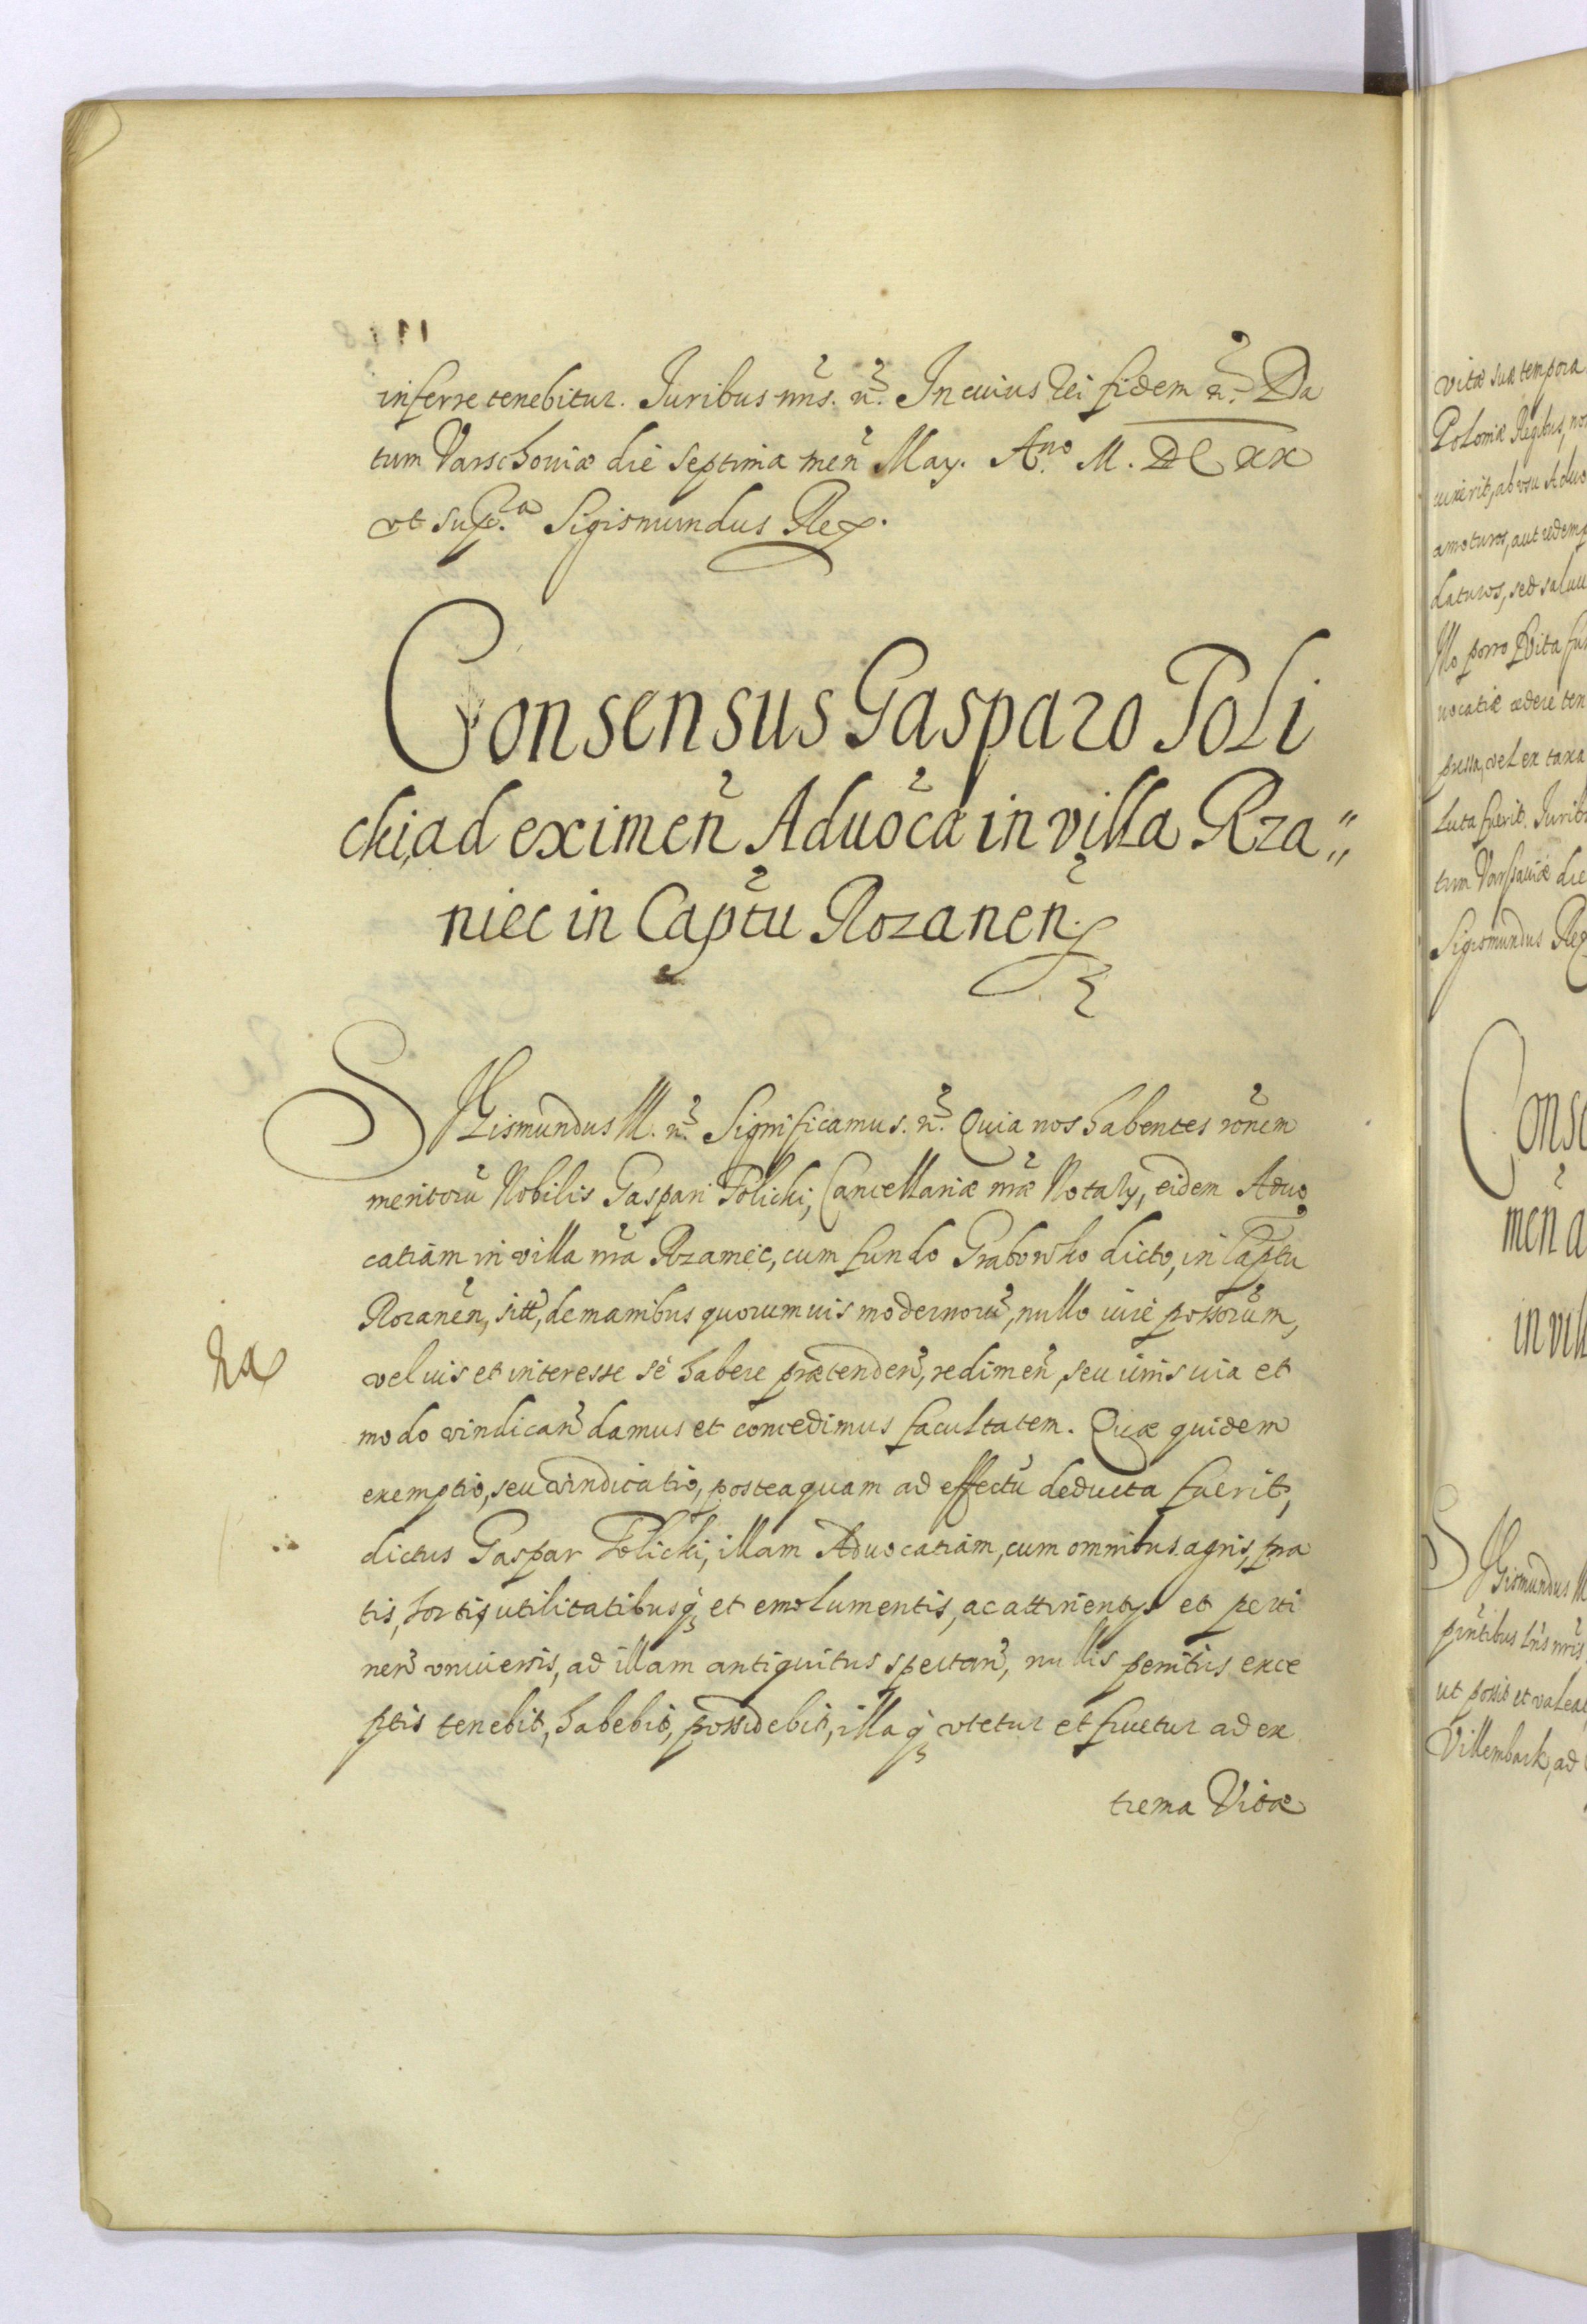 inferre tenebitur. Juribus nris. etc. In cuius Rei fidem etc. Da
tum Varschoviæ die septima men̄ May. A.no M. DC XX
vt sup.a Sigismundus Rex.
Consensus Gasparo Toli
cki, ad eximen̄ Aduo͞cæ in villa Rza„
niec in Cap͞tu Rozanen̄.
SIGismundus III. etc. Significamus. etc. Quia nos habentes ro͞nem
meritorū Nobilis Gaspari Tolicki, Cancellariæ n͞ræ Notarij, eidem Aduo
catiam in villa n͞ra Rzamiec, cum fundo Grabowko dicto, in Cap͞tu
Rozanen̄, sitt̄, de manibus quorumuis modernorū, nullo iure poss͞orum,
vel ius et interesse sé habere prætenden̄, redimen̄, seu iuris via et
modo vindican̄ damus et concedimus facultatem. Quæ quidem
exemptio, seu vindicatio, posteaquam ad effectū deducta fuerit,
dictus Gaspar Tolicki, illam Aduocatiam, cum omnibus agris, pra
tis, hortis, utilitatibusq; et emolumentis, ac attinentys et perti
nen̄ vniuersis, ad illam antiquitus spectan̄, nullis penitus exce
ptis tenebit, habebit, possidebit, illaq; vtetur et fruetur ad ex
trema Vitæ
Ra
vitæ suæ tempora
Poloniæ Regibus, no
uixerit, ab vsu Aduo
amoturos, aut redemp
daturos, sed saluu
Illo porro Vita fun
uocatiæ cedere ten
pressa, vel ex taxa
luta fuerit. Juribu
tum Varsauiæ die
Sigismundus Rex
Conse
men̄ a
in vill
SIGismundus III
p͞ntibus l͞ris n͞ris
ut possit et valeat
Villembark, ad